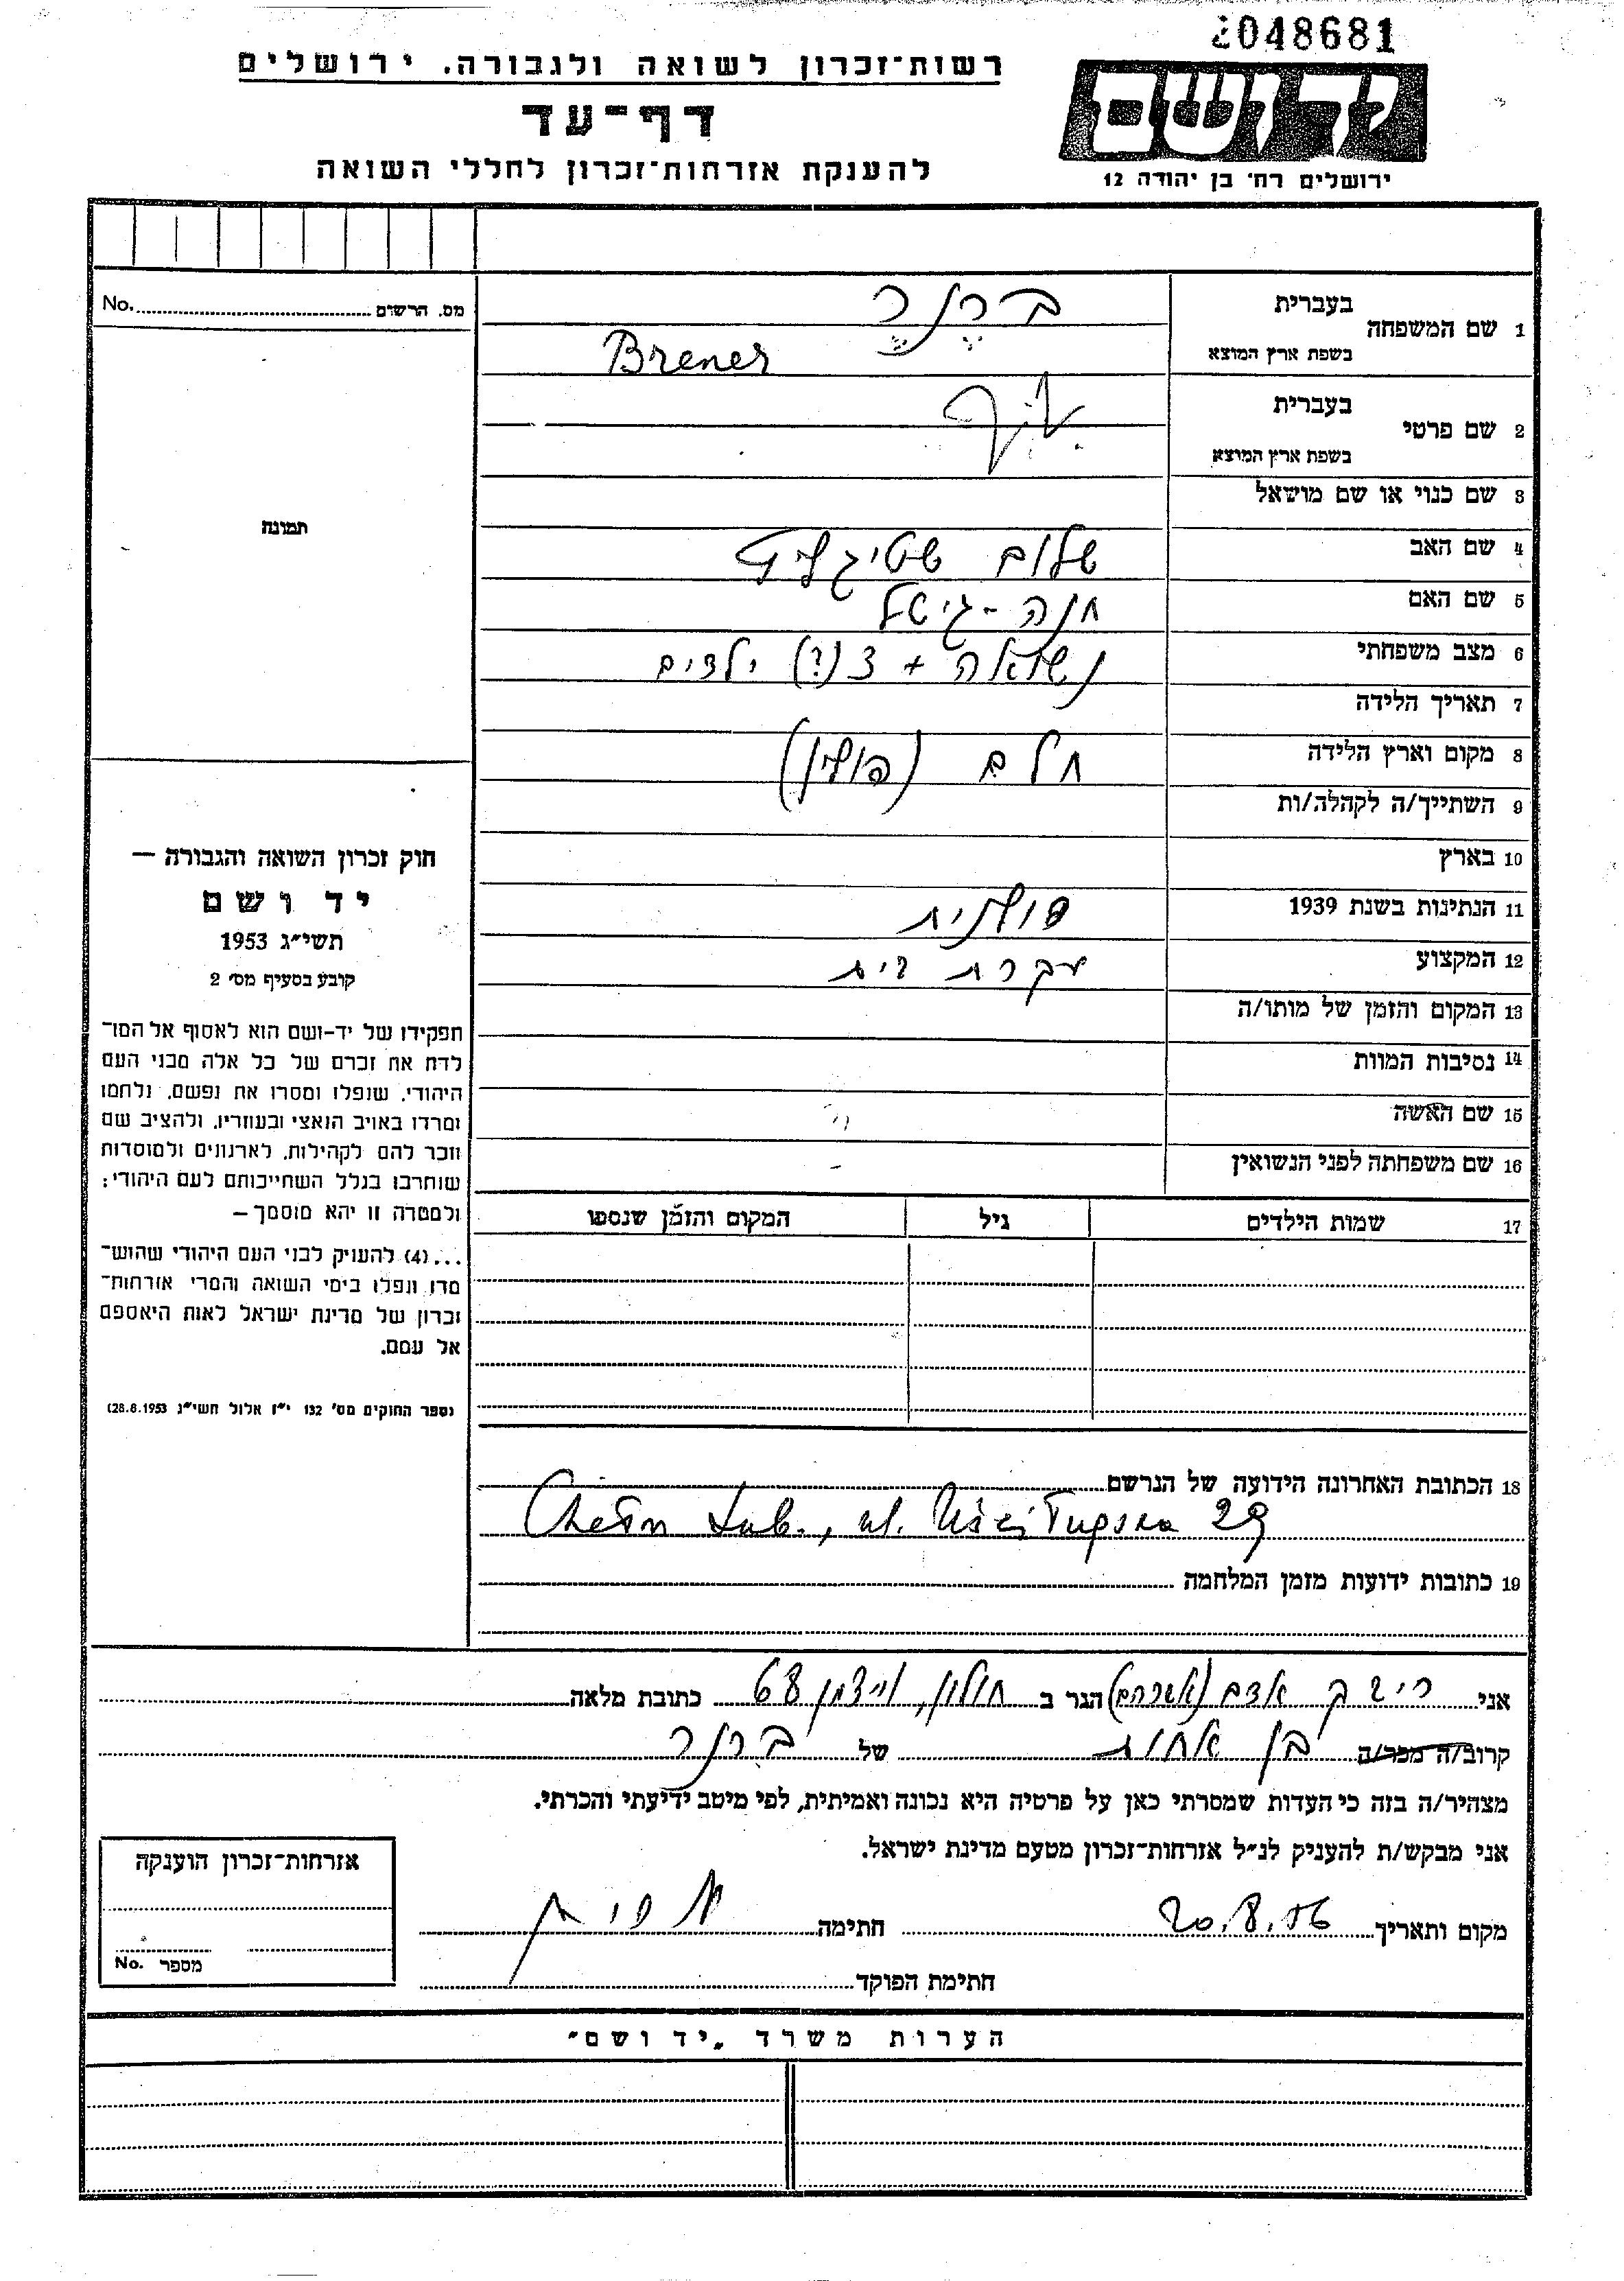 2048681
רשות־זכרון לשואה ולגבורה. ירושלים
דף־עד
להענקת אזרחות־זכרון לחללי השואה
יד ושם
ירושלים רח׳ בן יהודה 12
1 שם המשפחה
בעברית ברנר
בשפת ארץ המוצא Brener
2 שם פרטי
בעברית
בשפת ארץ המוצא
3 שם כנוי או שם מושאל
4 שם האב שלום שטיגליץ
5 שם האם חנה - גיטל
6 מצב משפחתי נשואה + 3 (?) ילדים
7 תאריך הלידה
8 מקום וארץ הלידה חלם (פולין)
9 השתייך/ה לקהלה/ות
10 בארץ
11 הנתינות בשנת 1939 פולנית
12 המקצוע עקרת בית
13 המקום והזמן של מותו/ה
14 נסיבות המוות
15 שם האשה
16 שם משפחתה לפני הנשואין
17 שמות הילדים גיל המקום והזמן שנספו
18 הכתובת האחרונה הידועה של הנרשם
Chełm Lub., ul. 29
19 כתובות ידועות מזמן המלחמה
No. מס. הרשום
תמונה
חוק זכרון השואה והגבורה —
יד ושם
תשי״ג 1953
קובע בסעיף מס׳ 2
תפקידו של יד-ושם הוא לאסוף אל המו־
לדת את זכרם של כל אלה מבני העם
היהודי, שנפלו ומסרו את נפשם, נלחמו
ומרדו באויב הנאצי ובעוזריו, ולהציב שם
וזכר להם לקהילות, לארגונים ולמוסדות
שוחרבו בגלל השתייכותם לעם היהודי;
ולמטרה זו יהא מוסמך —
...(4) להעניק לבני העם היהודי שהוש־
מדו ונפלו בימי השואה והמרי אזרחות־
זכרון של מדינת ישראל לאות היאספם
אל עמם.
(ספר החוקים מס׳ 132 י״ז אלול תשי״ג 28.8.1953)
אני אדם (אברהם) הגר ב חולון, ויצמן 68 כתובת מלאה
קרוב/ה מכר/ה בן אחות של ברנר
מצהיר/ה בזה כי העדות שמסרתי כאן על פרטיה היא נכונה ואמיתית, לפי מיטב ידיעתי והכרתי.
אני מבקש/ת להעניק לנ״ל אזרחות־זכרון מטעם מדינת ישראל.
מקום ותאריך 20.8.56 חתימה
חתימת הפוקד
אזרחות־זכרון הוענקה
מספר No.
הערות משרד „יד ושם״